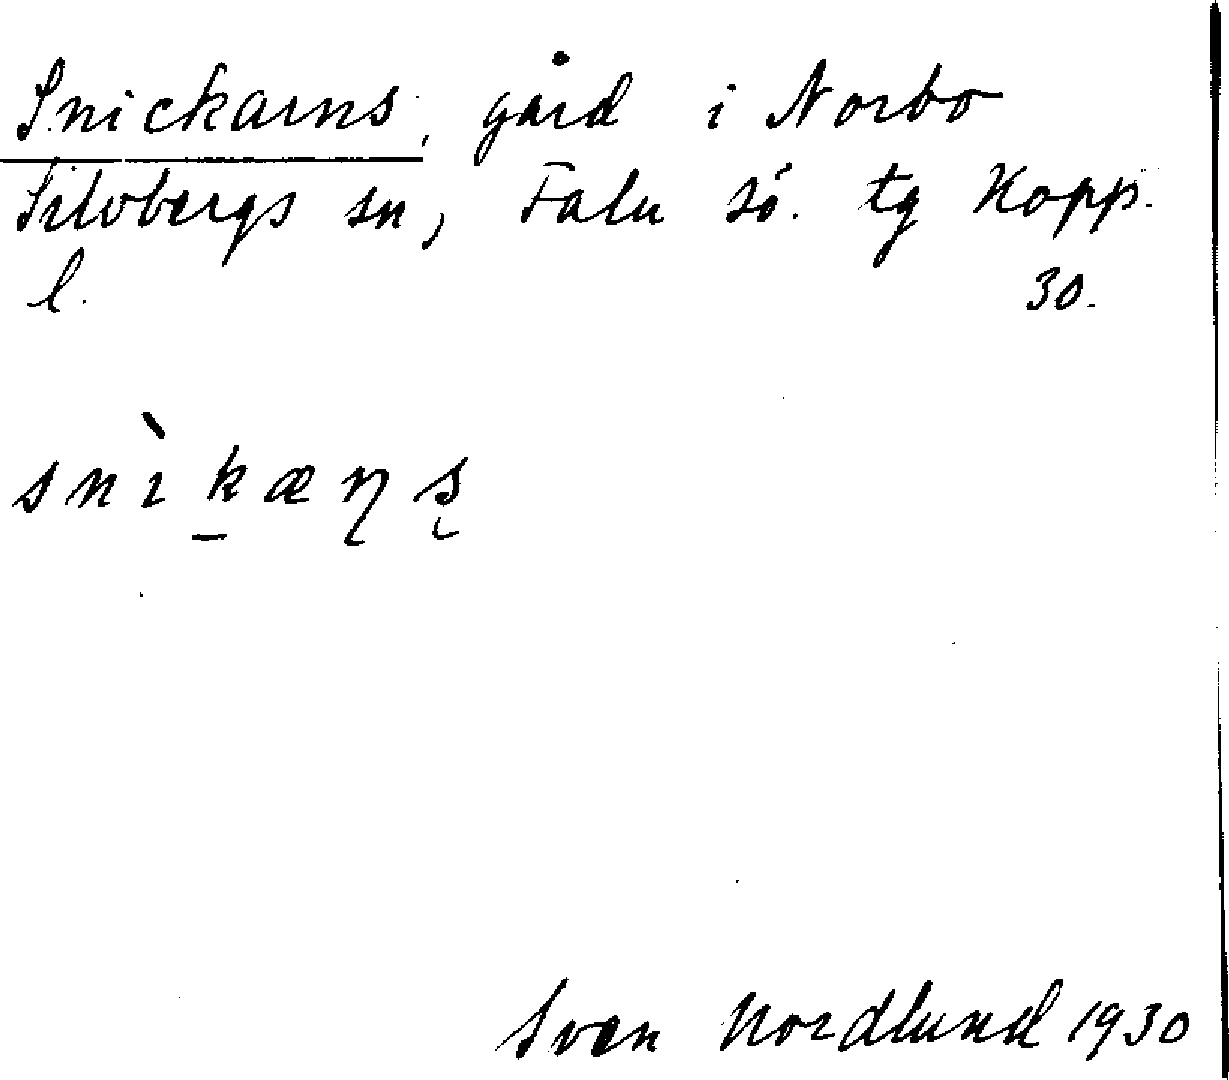 Snickarns, gård i Norbo
Silvbergs sn, Falu sö. tg Kopp.
l. 30.
snìk̠æɳʂ
Sven Nordlund 1930